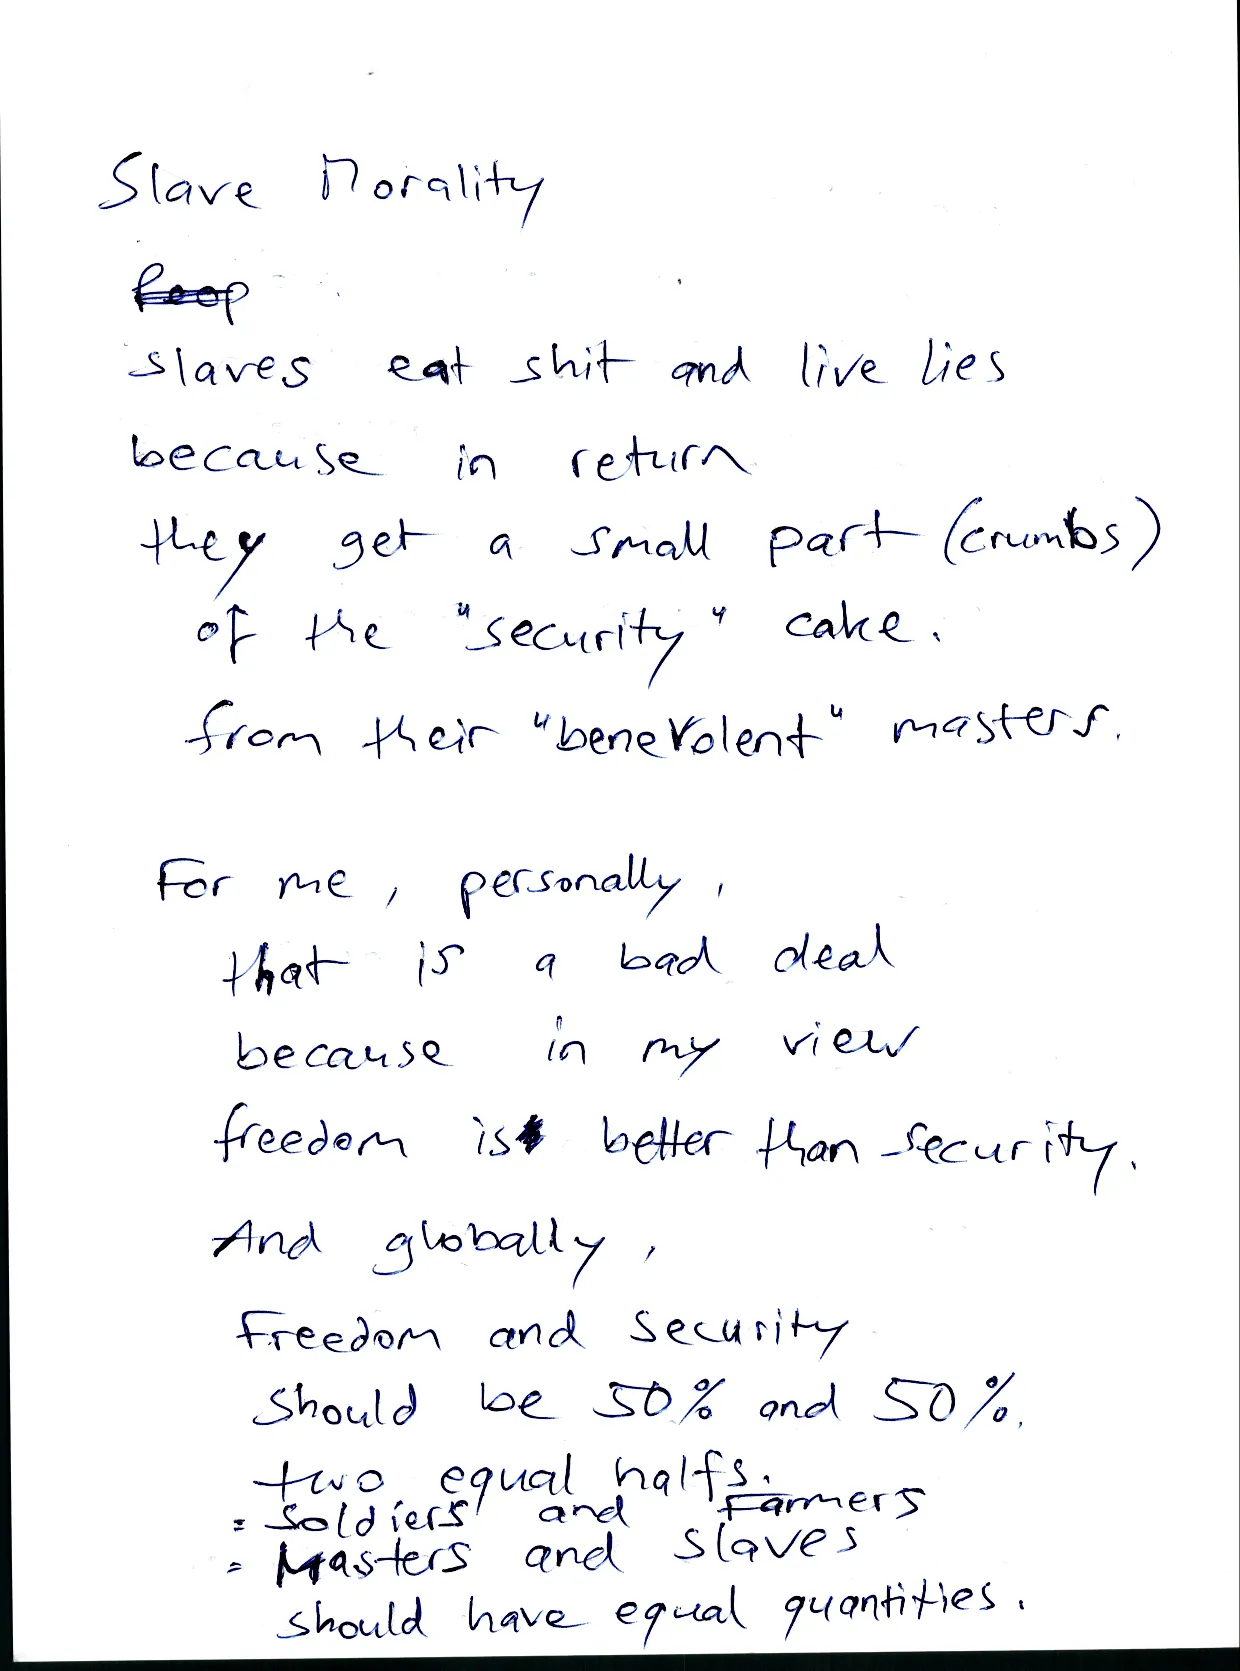 Slave Morality
slaves eat shit and live lies
because in return
they get a small part (crumbs)
of the "security" cake.
from their "benevolent" masters.
For me, personally,
that is a bad deal
because in my view
freedom is better than security.
And globally,
Freedom and security
should be 50% and 50%.
two equal halfs.
= Soldiers and Farmers
= Masters and slaves
should have equal quantities.